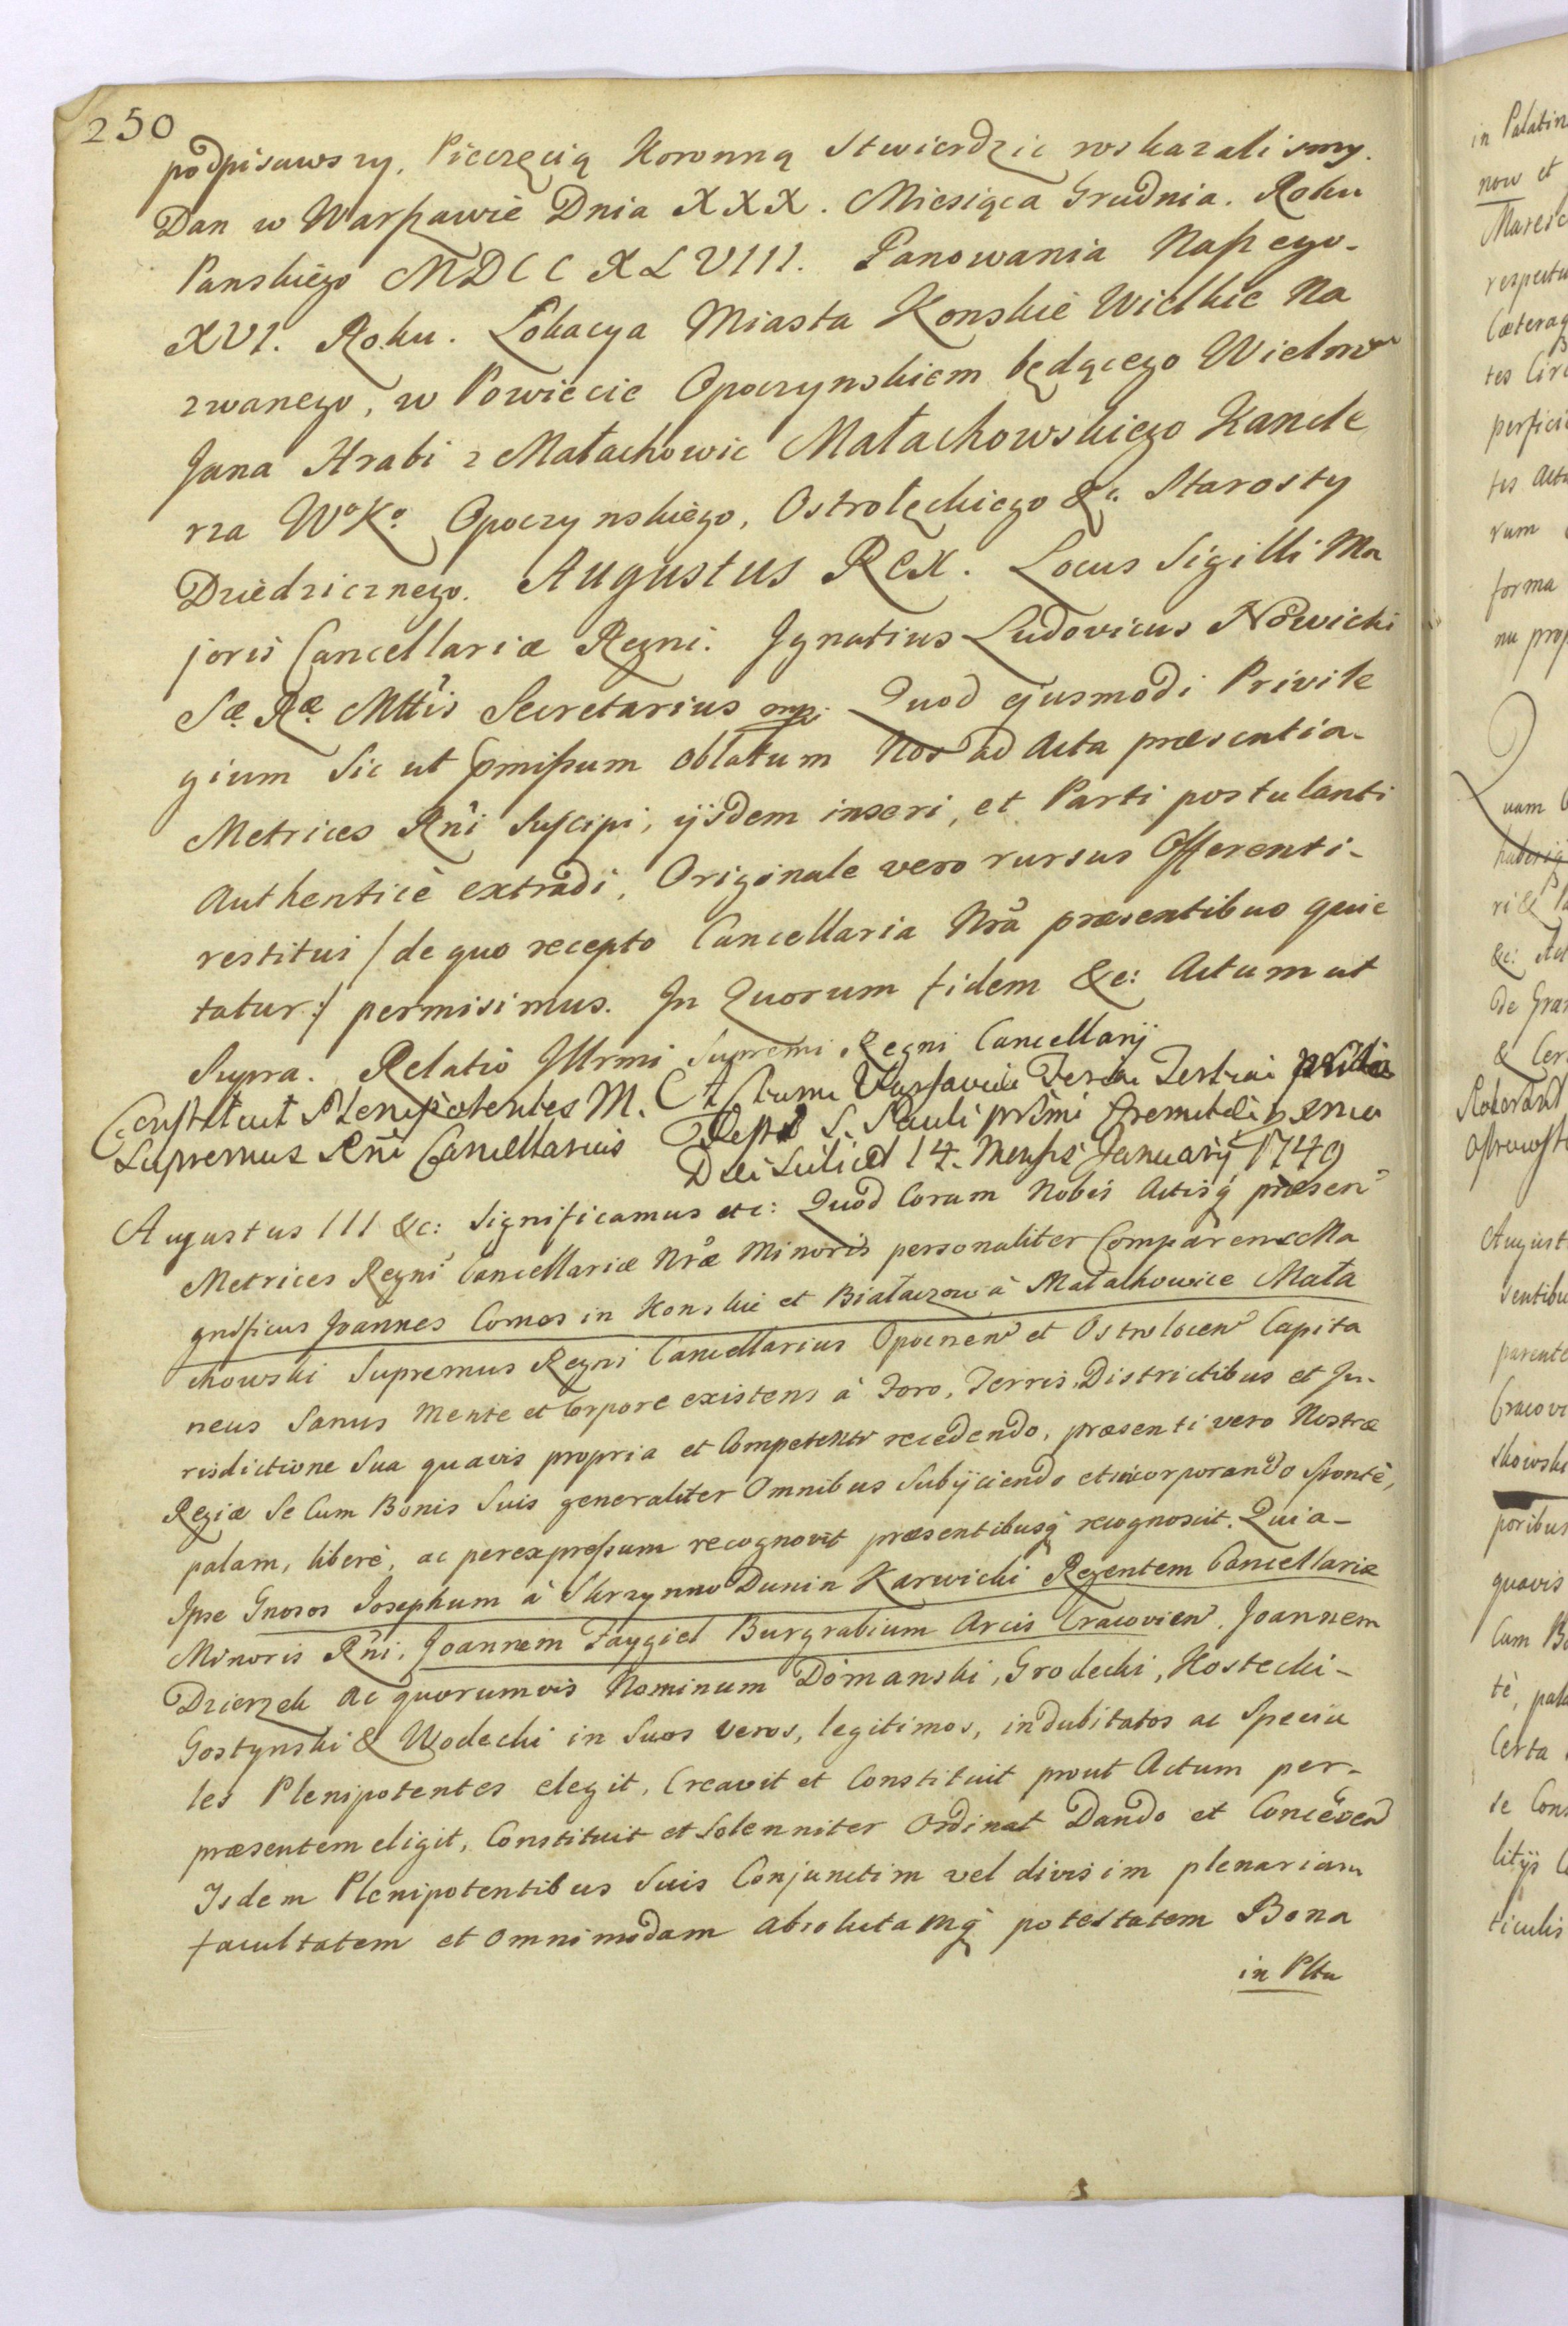 250
podpisawszy, Pieczęcią Koronną Stwierdzic roskazalismy.
Dan w Warszawie Dnia XXX. Miesiąca Grudnia. Roku
Panskiego MDCCXLVIII. Panowania Naszego
XVI. Roku. Lokacya Miasta Konskie Wielkie Na
zwanego, w Powiecie Opoczynskiem będącego Wielmo
Jana Hrabi z Małachowic Małachowskiego Kancle
rza WoKo Opoczynskiego, Ostrołęckiego &c. Starosty
Dziedzicznego. Augustus Rex. Locus Sigilli Ma
joris Cancellariæ Regni. Ignatius Ludovicus Nowicki
Sæ Ræ Mttis Secretarius mp. Quod ejusmodi Privile
gium Sic ut pmissum oblatum Nos ad Acta præsentia-
Metrices Rni Suscipi, ijsdem inseri, et Parti postulanti
Authenticè extradi, Originale vero rursus Offerenti-
restitui /de quo recepto Cancellaria Nrâ præsentibus quie
tatur:/ permisimus. In Quorum fidem &c: Actum ut
Supra. Relatio Illrmi Supremi Regni Cancellarij
Constituit Plenipotentes M. Supremus Rni Cancellarius
Actum Varsaviæ Feria Tertia pridie
Festi S. Pauli primi Eremitæ
Die Scilicet 14. Mensis Januarij 1749
Augustus III &c: Significamus etc: Quod Coram Nobis Actisq præsen
Metrices Regni Cancellariæ Nræ Minoris personaliter Comparens Ma
gnificus Joannes Comes in Konskie et Białaczow à Małachowice Mała
chowski Supremus Regni Cancellarius Opocnen et Ostrolocen Capita
neus Sanus Mente et Corpore existens à Foro, Terris, Districtibus et Ju-
risdictione Sua quavis propria et Competenti recedendo, præsenti vero Nostræ
Regiæ Se Cum Bonis Suis generaliter Omnibus Subijciendo et incorporando Spontè,
palam, liberè, ac per expressum recognovit præsentibusq recognoscit. Quia-
Ipse Gnosos Josephum à Skrzynno Dunin Karwicki Regentem Cancellariæ
Minoris Rni, Joannem Faygiel Burgrabium Arcis Cracovien, Joannem
Dzierzek Ac quorumvis Nominum Domanski, Grodecki, Kostecki-
Gostynski & Wodecki in Suos veros, legitimos, indubitatos ac Specia
les Plenipotentes elegit, Creavit et Constituit prout Actum per-
præsentem eligit, Constituit et Solenniter Ordinat Dando et Conceden
Isdem Plenipotentibus Suis Conjunctim vel divisim plenariam
facultatem et omnimodam absolutamq potestatem Bona
in Pltu
in Palatin
now et
respectu
Cætera
perfici
tes Act
rum
forma
Quam
ri & 
&c: Act
de Gra
& Cer
August
sentibu
parente
Cracovi
skowski
poribus
quavis
Cum Bo
tè, pala
Certa
se Cons
litijs
ticulis